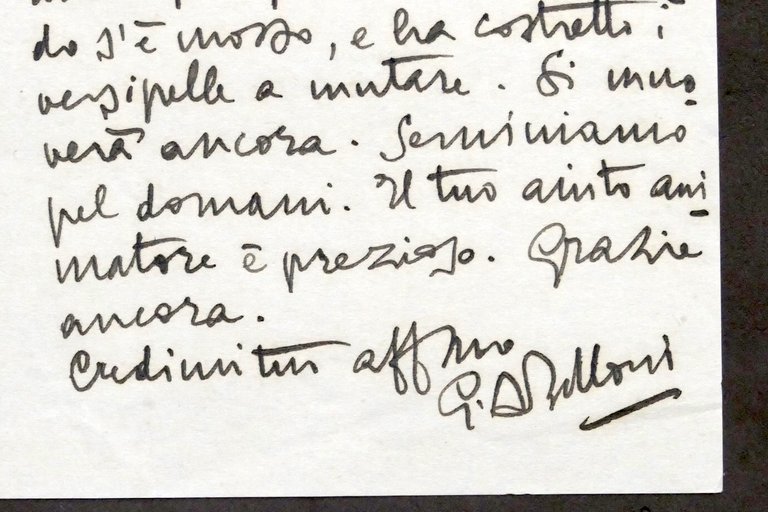 do s'è mosso, e ha costretto i
versipelle a mutare. Si muo
verà ancora. Seminiamo
pel domani. Il tuo aiuto ani
matore è prezioso. Grazie
ancora.
Credimi tuo affmo
G. A. Belloni